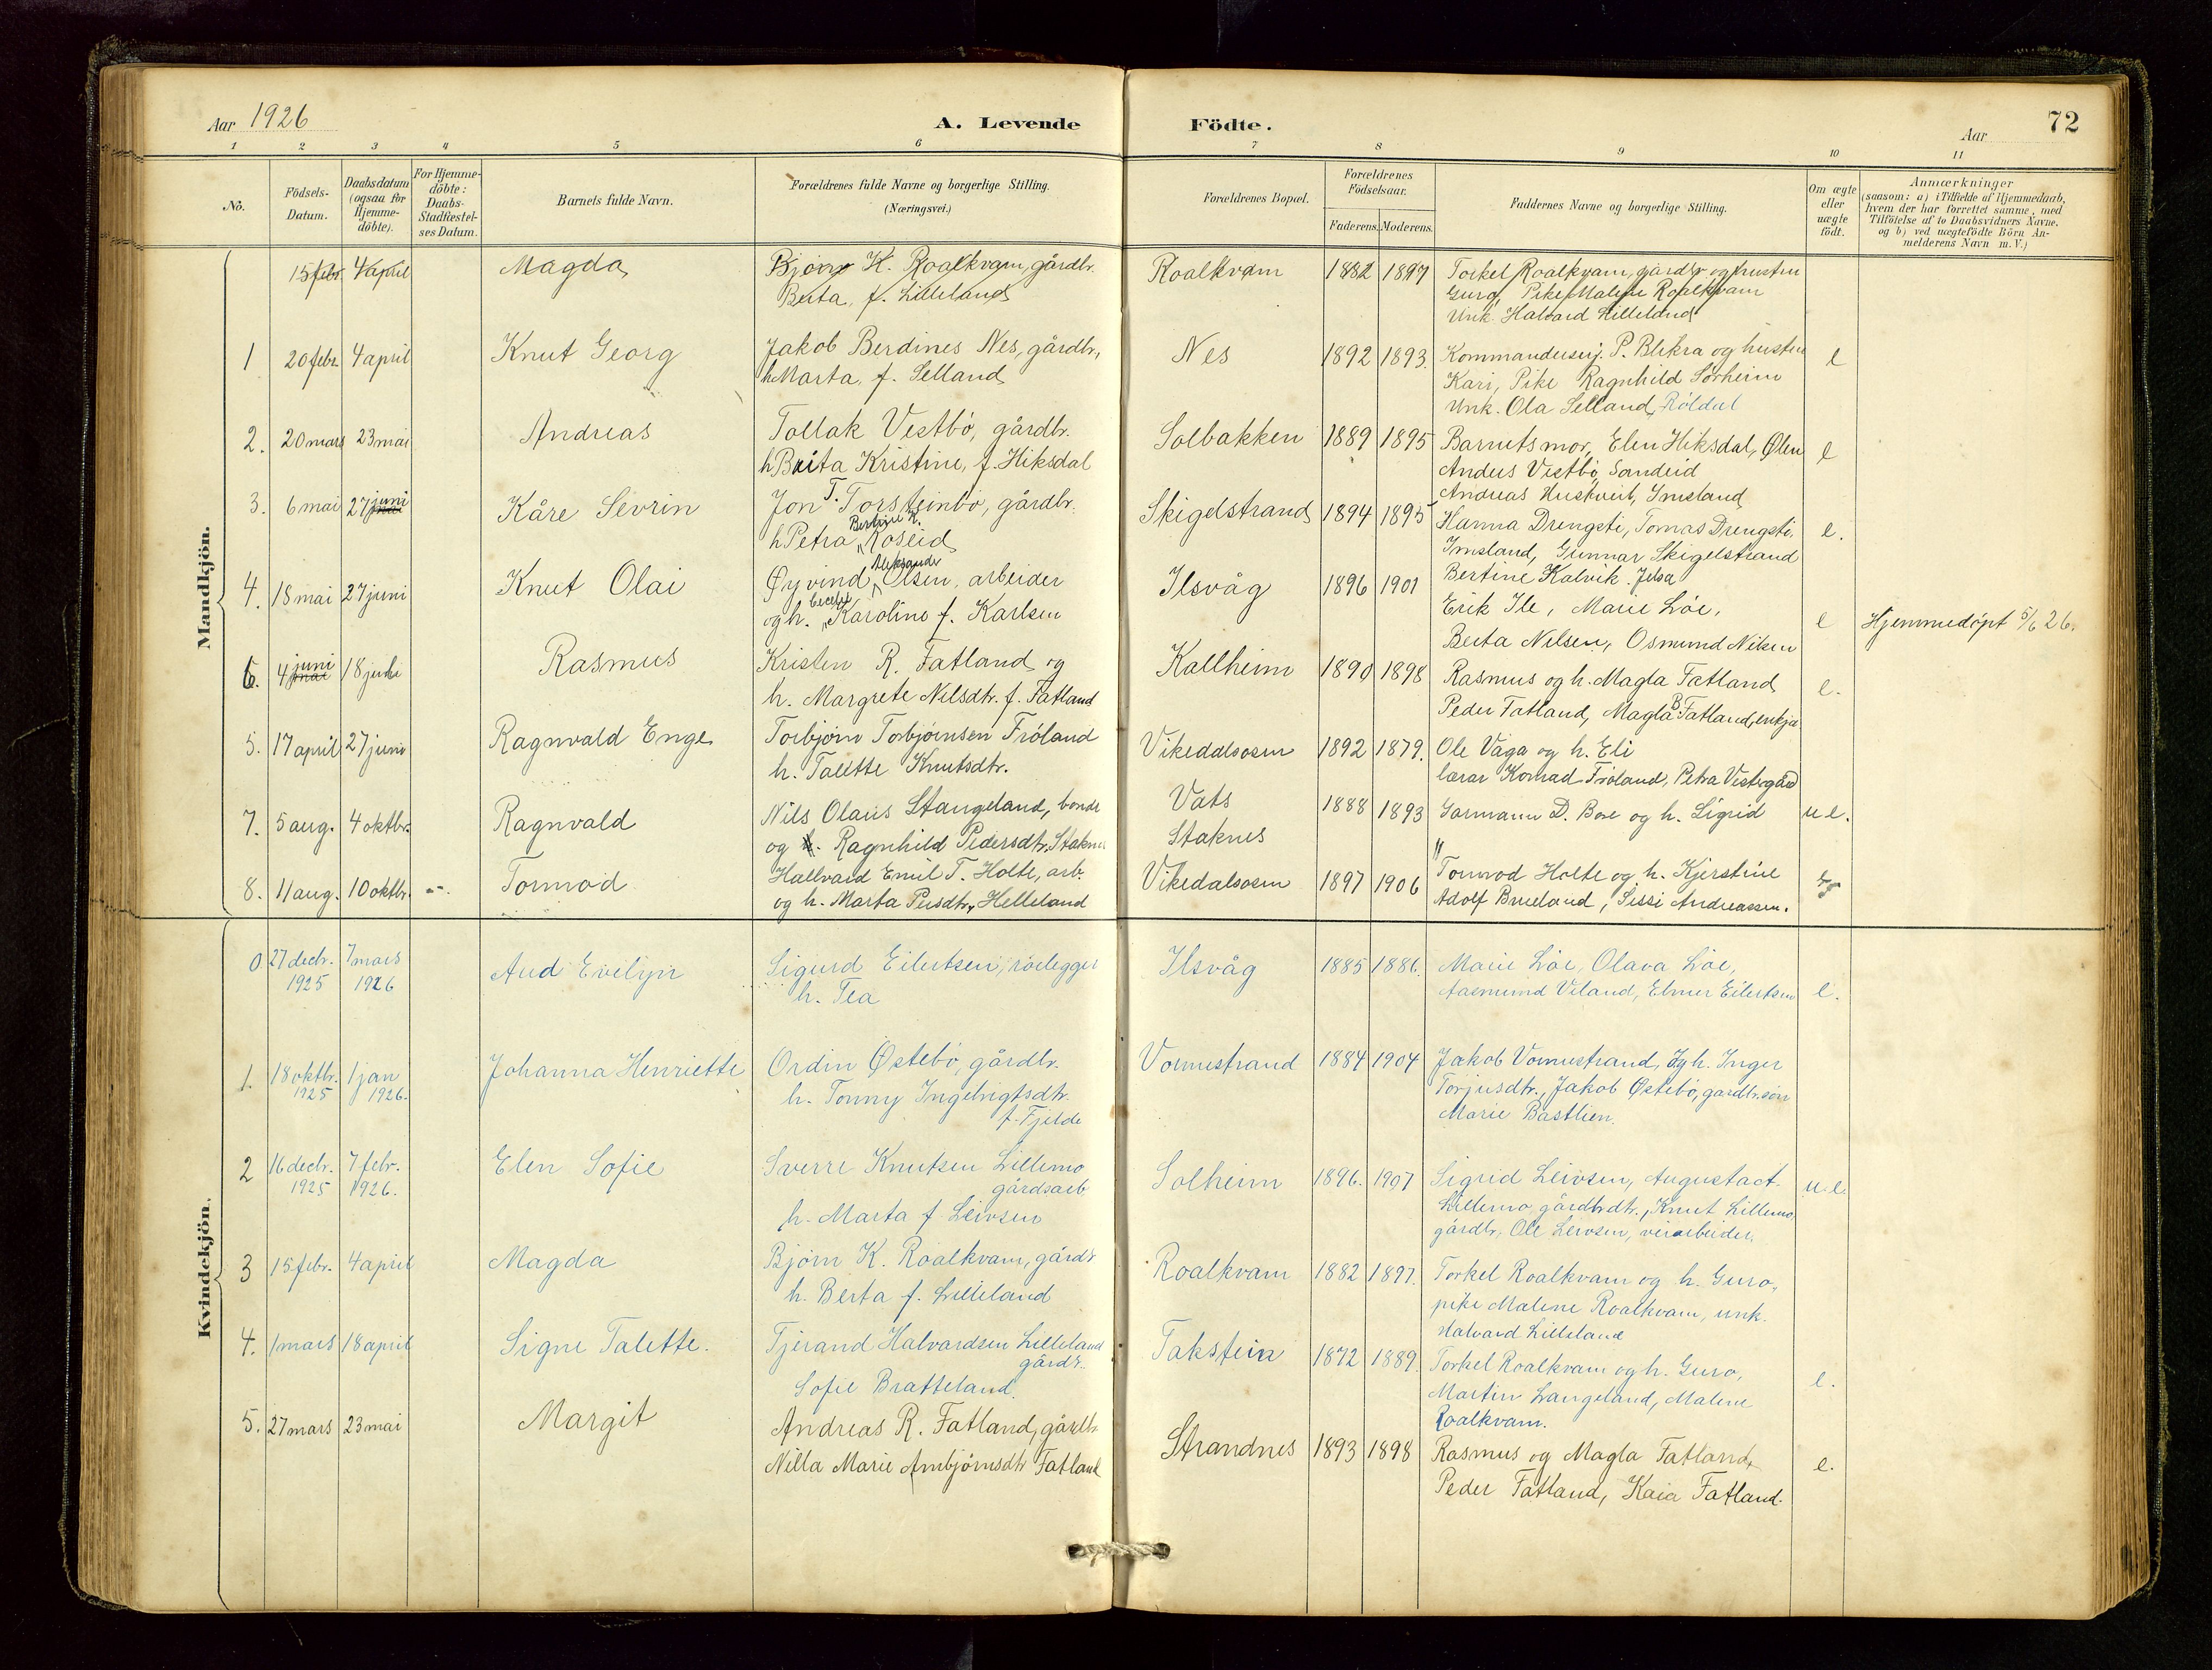 Aar 1926
A. Levende Födte.
Aar
72
1 2 3 4 5 6 7 8 9 10 11
No.
Födsels-Datum.
Daabsdatum (ogsaa for Hjemme-döbte).
For Hjemme-döbte: Daabs-Stadfæstel-ses Datum.
Barnets fulde Navn.
Forældrenes fulde Navne og borgerlige Stilling. (Næringsvei.)
Forældrenes Bopæl.
Forældrenes Födselsaar.
Faderens. Moderens.
Faddernes Navne og borgerlige Stilling.
Om ægte eller uægte födt.
Anmærkninger
(saasom: a) i Tilfælde af Hjemmedaab,
hvem der har forrettet samme, med
Tilföielse af to Daabsvidners Navne.
og b) ved uægtefödte Börn An-
melderens Navn m.V.)
Mandkjön.
15 febr. 4 april Magda Bjørn K. Roalkvam, gårdbr. Roalkvam 1882 1897 Torkel Roalkvam, gårdbr og hustru
Berta, f. Lilleland Guro, Pike Malene Roalkvam
Unk. Halvard Lilleland
1 20 febr. 4 april Knut Georg Jakob Berdines Nes, gårdbr, Nes 1892 1893. Kommandersrj. P. Blikra og hustru e
h Marta, f. Selland Kari, Pike Ragnhild Sørheim
Unk. Ola Selland, Röldal
2. 20 mars 23 mai Andreas Tollak Vestbö, gårdbr. Solbakken 1889 1895 Barnets mor, Elen Hiksdal, Ølen e
h Brita Kristine, f. Hiksdal Anders Vestbö, Sandeid
Andreas Huskveit, Imsland
3. 6 mai 27 juni mai Kåre Sevrin Jon T. Torsteinbö, gårdbr. Skigelstrand 1894 1895 Hanna Drengsti, Tomas Drengsti, e.
h Petra Bertine K. Roseid Imsland, Gunnar Skigelstrand
Bertine Kalvik. Jelsa
4. 18 mai 27 juni Knut Olai Øyvind Aleksander Olsen, arbeider Ilsvåg 1896 1901 Erik Ile, Marie Löe, e Hjemmedøpt 5/6 26.
og h. Karoline f. Karlsen Berta Nilsen, Osmund Nilsen
6. 4 juni mai 18 juli Rasmus Kristen R. Fatland og Kallheim 1890 1898 Rasmus og h. Magla Fatland, e.
h. Margrete Nilsdtr. f. Fatland Peder Fatland, Magla B. Fatland, enkja
5. 17 april 27 juni Ragnvald Enge Torbjørn Torbjørnsen Fröland Vikedalsosen 1892 1879. Ole Våga og h. Eli
h. Talette Knutsdtr. lærar Konrad Fröland, Petra Vestergård
7. 5 aug. 4 oktbr. Ragnvald Nils Olaus Stangeland, bonde Vats 1888 1893 Garmann D. Bore og h. Sigrid u e.
og h. Ragnhild Pedersdtr. Staknes Staknes "
8. 11 aug. 10 oktbr. -"-. Tormod Hallvard Emil T. Holte, arb. Vikedalsosen 1897 1906 Tormod Holte og h. Kjerstine
og h. Marta Persdtr, Helleland Adolf Brueland, Sissi Andreassen.
Kvindekjön.
0 27 decbr. 1925 7 mars 1926 Aud Evelyn Sigurd Eilertsen, rörlegger Ilsvåg 1885 1886. Marie Löe, Olava Löe, e.
h. Tea Aasmund Veland, Elmer Eilertsen
1. 18 oktbr. 1925 1 jan 1926. Johanna Henriette Ordin Østebö, gårdbr. Vormestrand 1884 1904 Jakob Vormestrand, og h. Inger
h. Tonny Ingebrigtsdtr. Torjusdtr., Jakob Østebö, gardbr.sön
f. Fjelde Marie Bastlien.
2 16 decbr. 1925 7 febr. 1926. Elen Sofie Sverre Knutsen Lillemo Solheim 1896. 1907 Sigrid Leivsen, Augusta A. u e.
gårdsarb. Lillemo gårdbrdtr., Knut Lillemo
h. Marta f. Leivsen gårdbr, Ole Leivsen, veiarbeider.
3 15 febr. 4 april Magda Bjørn K. Roalkvam, gårdr Roalkvam 1882 1897. Torkel Roalkvam og h. Guro,
h. Berta f. Lilleland pike Malene Roalkvam, unk.
Halvard Lilleland
4. 1 mars 18 april Signe Talette. Tjerand Halvardsen Lilleland Takstein 1872 1889. Torkel Roalkvam og h. Guro, e.
gårdr. Martin Langeland, Malene
Sofie Bratteland. Roalkvam.
5. 27 mars 23 mai Margit Andreas R. Fatland, gårdbr Strandnes 1893 1898 Rasmus og Magla Fatland, e.
Nilla Marie Arnbjörnsdtr Fatland Peder Fatland, Kaia Fatland.